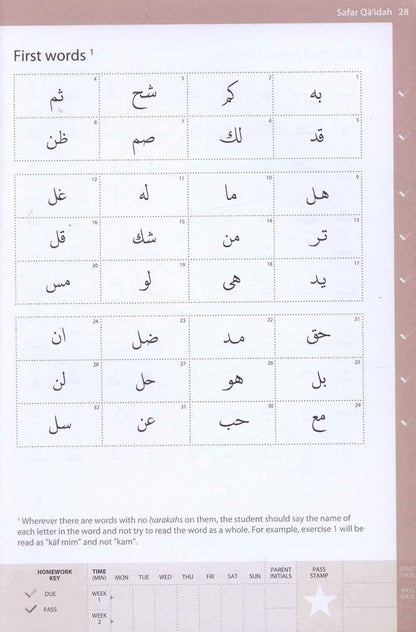 Safar Qā'idah 28
First words ¹
1 به 2 كم 3 شح 4 ثم
5 قد 6 لك 7 صم 8 ظن
9 هل 10 ما 11 له 12 غل
13 تر 14 من 15 شك 16 قل
17 يد 18 هى 19 لو 20 مس
21 حق 22 مد 23 ضل 24 ان
25 بل 26 هو 27 حل 28 لن
29 مع 30 حب 31 عن 32 سل
¹ Wherever there are words with no ḥarakahs on them, the student should say the name of
each letter in the word and not try to read the word as a whole. For example, exercise 1 will be
read as "kāf mīm" and not "kam".
HOMEWORK KEY
DUE
PASS
TIME (MIN) MON TUE WED THU FRI SAT SUN
WEEK 1
WEEK 2
PARENT INITIALS
PASS STAMP
START DATE
PASS DATE